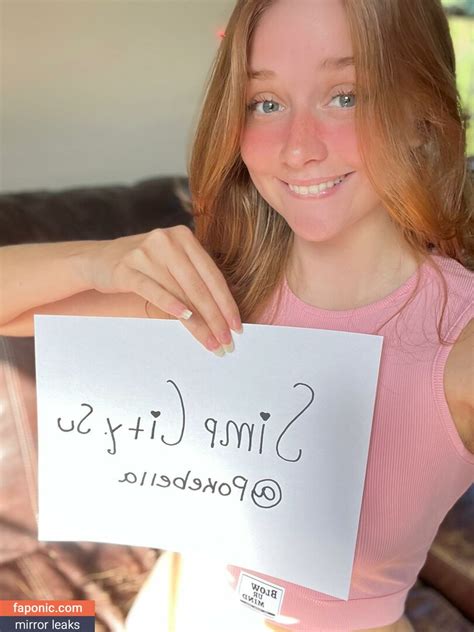 SimpCity.su
@Pokebella
BLOW
UR
MIND
faponic.com
mirror leaks